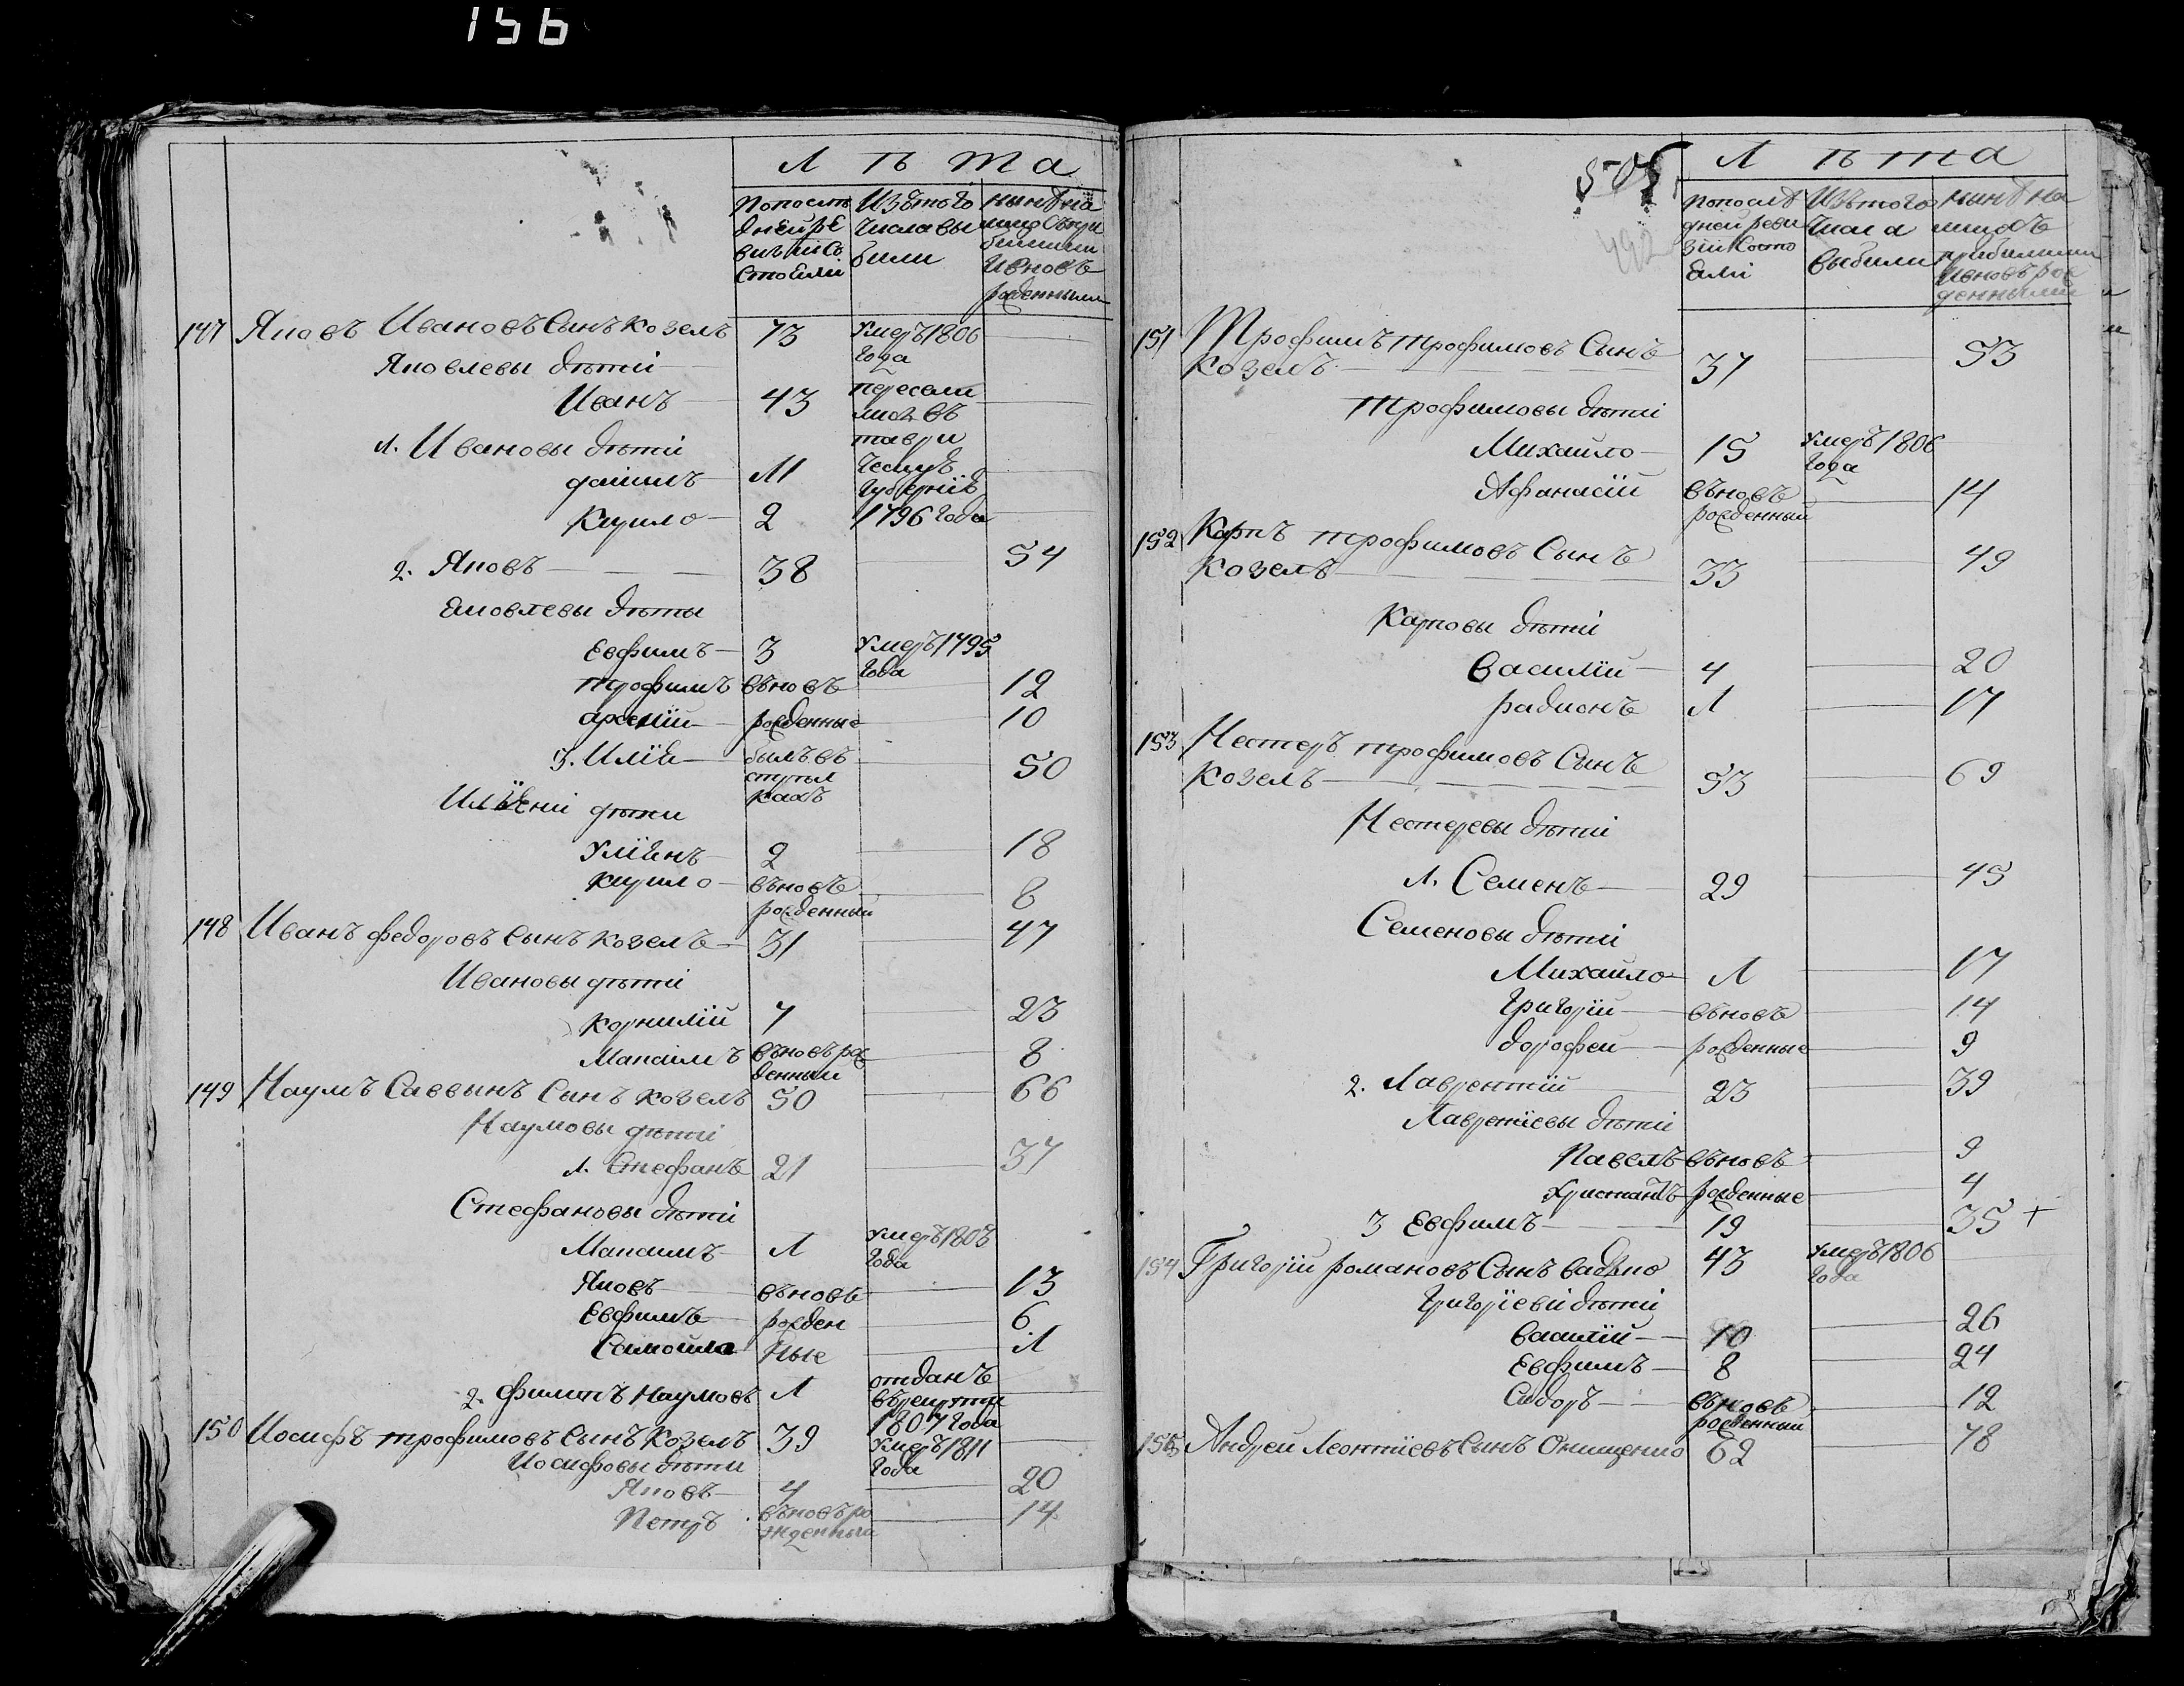 156
Лѣта
Попослѣ Изътого нынѣ на
днейре числавы лицо съпри
визiисо были бывшими
стояли ивновь
рожденными
147 Яковъ Ивановъ Сынъ Козелъ 73 Умеръ 1806
года
Яковлевы дѣти
Иванъ 43 пересели
лись въ
1. Ивановы дѣти таври
11 ческую
губернiю
Кирило 2 1796 года
2. Яковъ 38 54
Яковлевы дѣты
Евфимъ 3 Умеръ 1795
года
трофимъ вѣновь 12
арсенiй рожденные 10
3. Илiя былъ въ 50
кахъ
дѣти
Улiянъ 2 18
Кирило вѣновь 8
рожденный
148 Иванъ федоровъ Сынъ Козелъ 31 47
Ивановы дѣти
Корнилiй 7 23
Максимъ вѣновь рож 8
денный
149 Наумъ Саввынъ Сынъ Козелъ 50 66
Наумовы дѣти
1. Стефанъ 21 37
Стефановы дѣти
Максимъ 1 Умеръ 1803
года
Яковъ вѣновь 13
Евфимъ рожден 6
Самойла ные 1
2. филипъ Наумовъ 1 отданъ
въ рекруты
1807 года
150 Иосифъ трофимовъ Сынъ Козелъ 39 Умеръ 1811
года
Иосифовы дѣти
Яковъ 4 20
Петръ вѣновь ро 14
жденный
505
492
Лѣта
Попослѣ Изътого нынѣ на
дней реви числа лицо съ
зiи состо выбыли прибылыми
яли ивновь рож
денными
151 Трофимъ трофимовъ Сынъ
Козелъ 37 53
трофимовы дѣти
Михайло 15 Умеръ 1806
года
Афанасiй вѣновь 14
рожденный
152 Карпъ трофимовъ Сынъ
Козелъ 33 49
Карповы дѣти
Василiй 4 20
радионъ 1 17
153 Нестеръ трофимовъ Сынъ
Козелъ 53 69
Нестеревы дѣти
1. Семенъ 29 45
Семеновы дѣти
Михайло 1 17
Григорiй вѣновь 14
дорофей рожденные 9
2. Лаврентiй 23 39
Лавретiевы дѣти
Павелъ вѣновь 9
рожденные 4
3 Евфимъ 19 35 +
154 Григорiй романовъ Сынъ 43 Умеръ 1806
года
Григорiеви дѣти
Василiй 10 26
Евфимъ 8 24
Сидоръ вѣновь 12
рожденный
155 Андрей Леонтiевъ Сынъ Онищенко 62 78